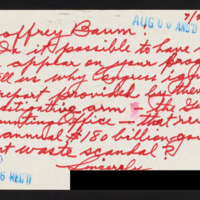 7/2
AUG 06 ANS'D
offrey Baum,
Is it possible to have
appear on your prog
tell us why Congress ign
report provided by their
ditative arm the Ge
unting Office - that re
annual $180 billion go
t waste scandal?
Sincerely
6 REC'D